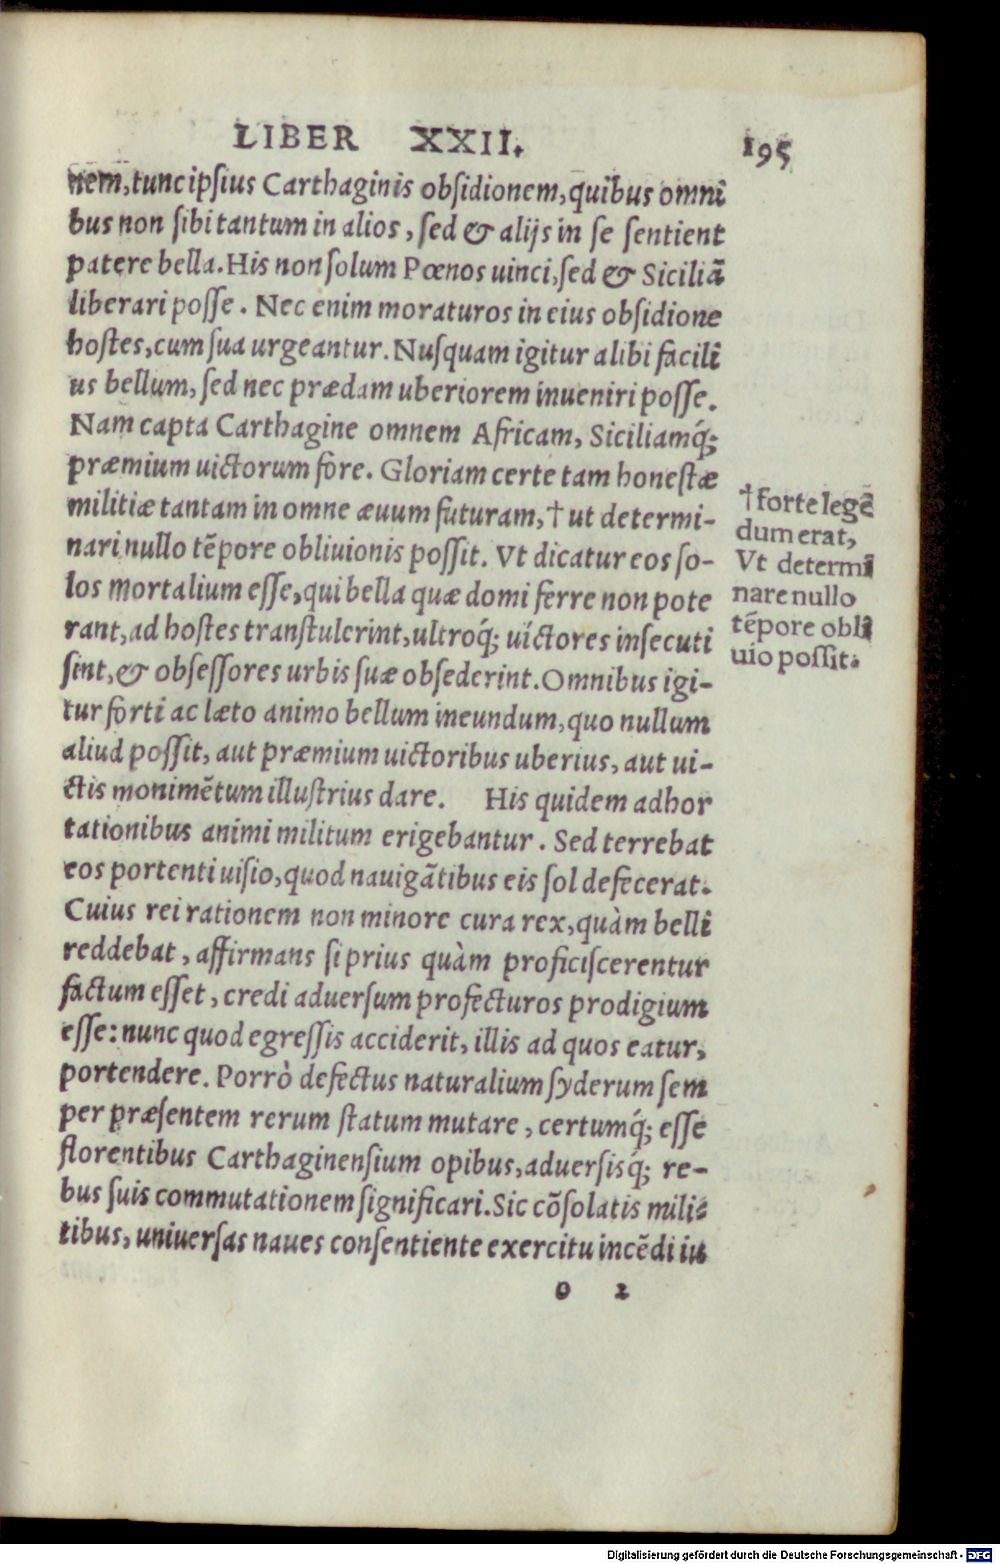 LIBER XXII. 195
nem, tunc ipsius Carthaginis obsidionem, quibus omni
bus non sibi tantum in alios, sed & alijs in se sentient
patere bella. His non solum Pœnos uinci, sed & Siciliã
liberari posse. Nec enim moraturos in eius obsidione
hostes, cum sua urgeantur. Nusquam igitur alibi facili
us bellum, sed nec prædam uberiorem inueniri posse.
Nam capta Carthagine omnem Africam, Siciliamq́;
præmium uictorum fore. Gloriam certe tam honestæ
militiæ tantam in omne æuum futuram, † ut determi-
nari nullo tẽpore obliuionis possit. Vt dicatur eos so-
los mortalium esse, qui bella quæ domi ferre non pote
rant, ad hostes transtulerint, ultroq́; uictores insecuti
sint, & obsessores urbis suæ obsederint. Omnibus igi-
tur forti ac læto animo bellum ineundum, quo nullum
aliud possit, aut præmium uictoribus uberius, aut ui-
ctis monimẽtum illustrius dare. His quidem adhor
tationibus animi militum erigebantur. Sed terrebat
eos portenti uisio, quod nauigãtibus eis sol defecerat.
Cuius rei rationem non minore cura rex, quàm belli
reddebat, affirmans si prius quàm proficiscerentur
factum esset, credi aduersum profecturos prodigium
esse: nunc quod egressis acciderit, illis ad quos eatur,
portendere. Porrò defectus naturalium syderum sem
per præsentem rerum statum mutare, certumq́; esse
florentibus Carthaginensium opibus, aduersisq́; re-
bus suis commutationem significari. Sic cõsolatis mili-
tibus, uniuersas naues consentiente exercitu incẽdi iu
o 2
† forte legẽ
dum erat,
Vt determĩ
nare nullo
tẽpore obli
uio possit.
Digitalisierung gefördert durch die Deutsche Forschungsgemeinschaft - DFG